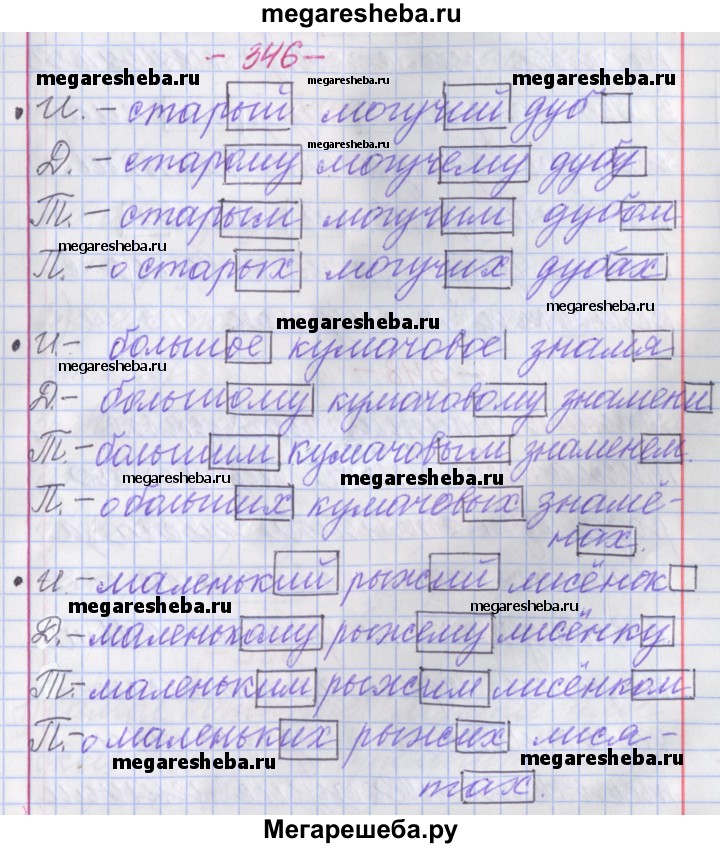 megaresheba.ru
- 346 -
megaresheba.ru megaresheba.ru megaresheba.ru
• И. - старый могучий дуб
megaresheba.ru
Д. - старому могучему дубу
Т. - старым могучим дубом
megaresheba.ru
П. - о старых могучих дубах
megaresheba.ru
megaresheba.ru
• И - большое кумачовое знамя
megaresheba.ru
Д. - большому кумачовому знамени
Т. - большим кумачовым знаменем.
megaresheba.ru megaresheba.ru
П. - о больших кумачовых знамё-
нах.
• И. - маленький рыжий лисёнок
megaresheba.ru megaresheba.ru
Д. - маленькому рыжему лисёнку
Т. - маленьким рыжим лисёнком
П. - о маленьких рыжих лися-
megaresheba.ru megaresheba.ru
тах.
Мегарешеба.ру